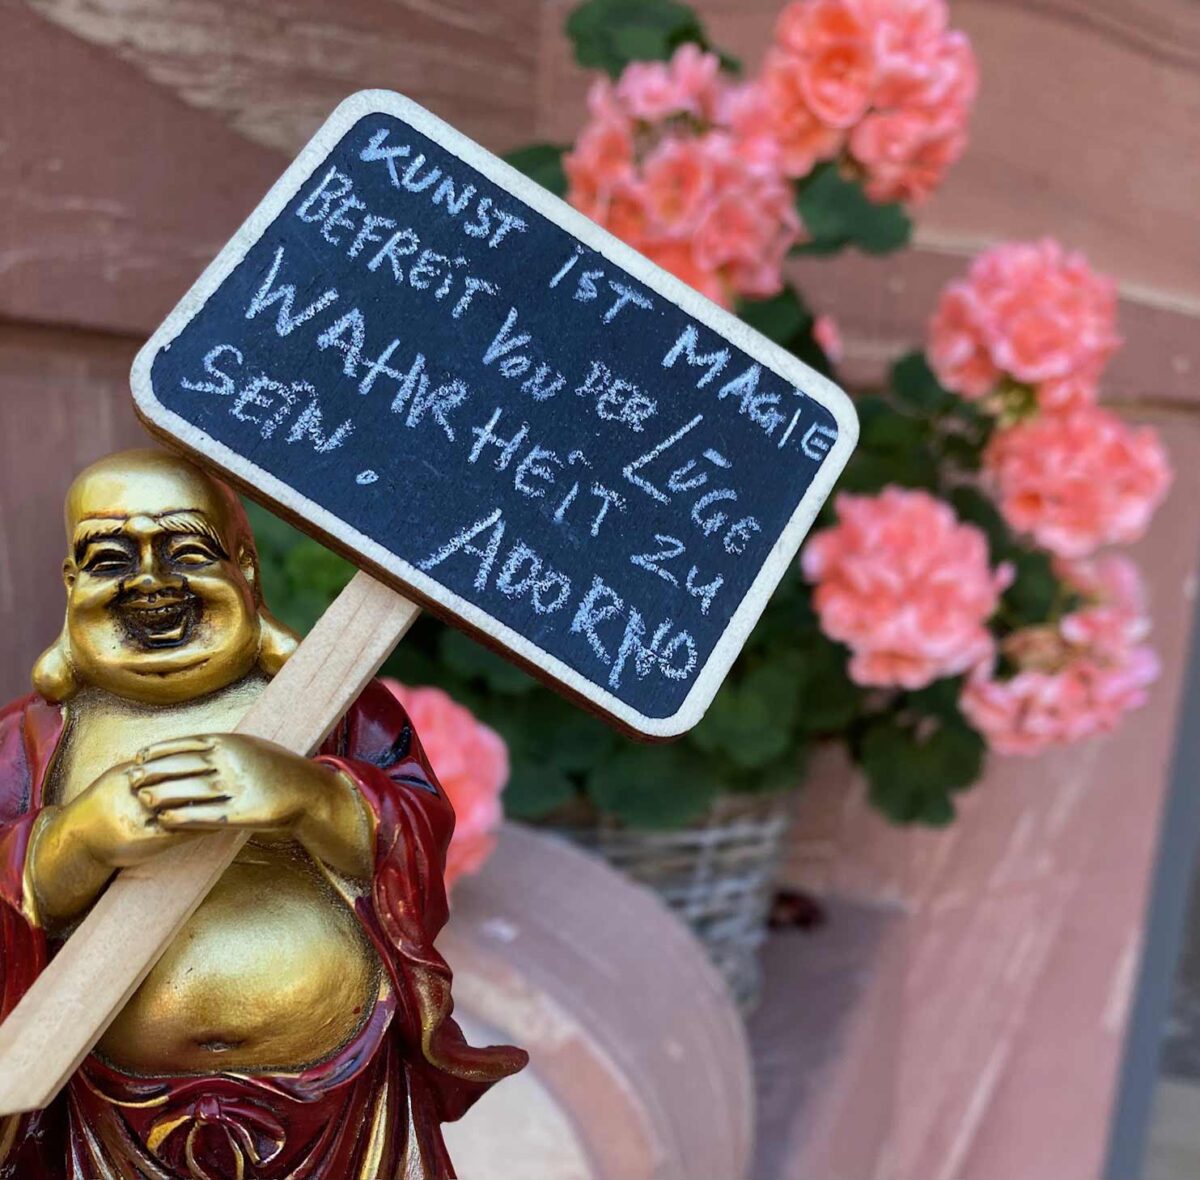 KUNST iST MAGIE
BEFREiT VON DER LÜGE
WAHRHEiT ZU
SEiN.
ADORNO